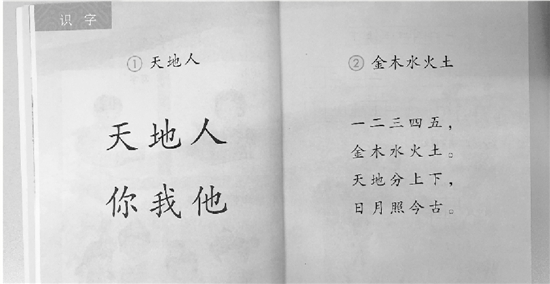 识字
① 天地人
天地人
你我他
② 金木水火土
一二三四五，
金木水火土。
天地分上下，
日月照今古。